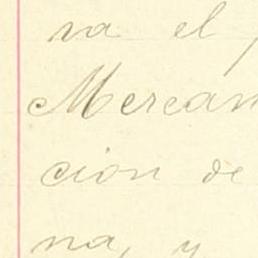 ra el
Mercan
cion de
na, y